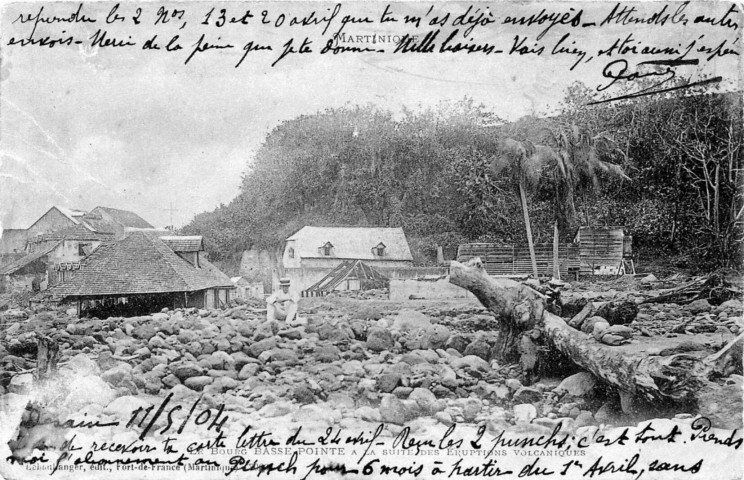 repondu les 2 Nos, 13 et 20 avril que tu m'as déjà envoyés - Attends les autres
envois - Merci de la peine que je te donne - Mille baisers - Vais bien, et toi aussi j'espère
MARTINIQUE
11/5/04
de recevoir ta carte lettre du 24 avril - Reçu les 2 punchs, c'est tout. Prends
LE BOURG BASSE-POINTE A LA SUITE DES ERUPTIONS VOLCANIQUES
moi l'abonnement au Punch pour 6 mois à partir du 1er Avril, sans
édit., Fort-de-France (Martinique)